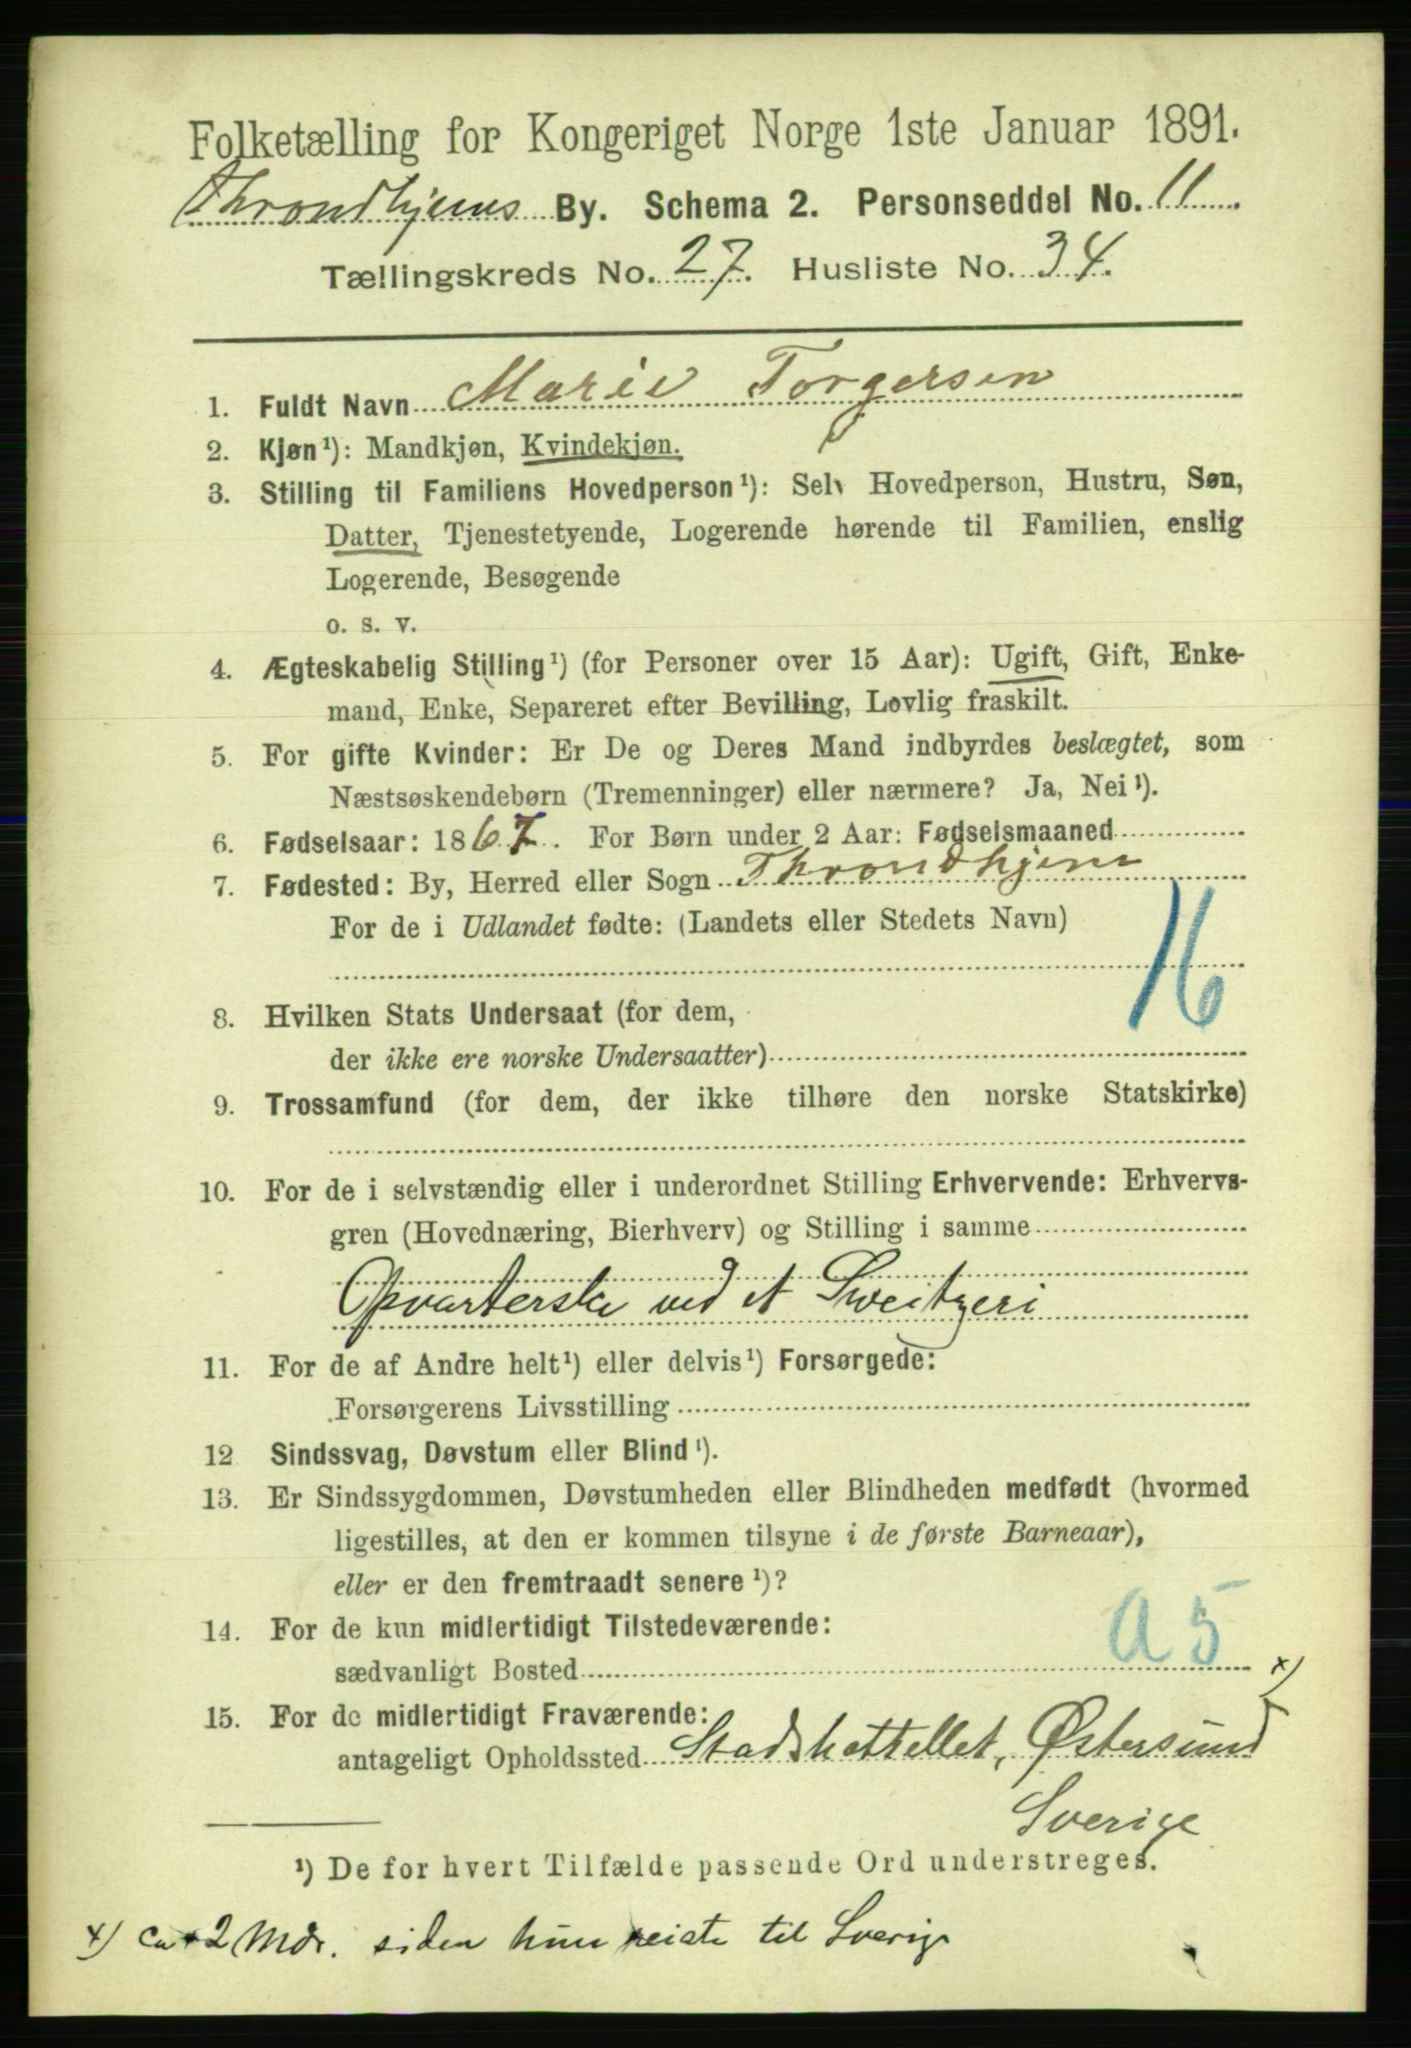 Folketælling for Kongeriget Norge 1ste Januar 1891.
Throndhjems By. Schema 2. Personseddel No. 11
Tællingskreds No. 27. Husliste No. 34.
1. Fuldt Navn Marie Torgersen
2. Kjøn¹): Mandkjøn, Kvindekjøn.
3. Stilling til Familiens Hovedperson¹): Selv Hovedperson, Hustru, Søn,
Datter, Tjenestetyende, Logerende hørende til Familien, enslig
Logerende, Besøgende
o. s. v.
4. Ægteskabelig Stilling¹) (for Personer over 15 Aar): Ugift, Gift, Enke-
mand, Enke, Separeret efter Bevilling, Lovlig fraskilt.
5. For gifte Kvinder: Er De og Deres Mand indbyrdes beslægtet, som
Næstsøskendebørn (Tremenninger) eller nærmere? Ja, Nei¹).
6. Fødselsaar: 1867. For Børn under 2 Aar: Fødselsmaaned
7. Fødested: By, Herred eller Sogn Throndhjem
For de i Udlandet fødte: (Landets eller Stedets Navn)
16
8. Hvilken Stats Undersaat (for dem,
der ikke ere norske Undersaatter)
9. Trossamfund (for dem, der ikke tilhøre den norske Statskirke)
10. For de i selvstændig eller i underordnet Stilling Erhvervende: Erhvervs-
gren (Hovednæring, Bierhverv) og Stilling i samme
Opvarterske ved et Sweitzeri
11. For de af Andre helt¹) eller delvis¹) Forsørgede:
Forsørgerens Livsstilling
12 Sindssvag, Døvstum eller Blind¹).
13. Er Sindssygdommen, Døvstumheden eller Blindheden medfødt (hvormed
ligestilles, at den er kommen tilsyne i de første Barneaar),
eller er den fremtraadt senere¹)?
14. For de kun midlertidigt Tilstedeværende:
sædvanligt Bosted
a 5
x)
15. For de midlertidigt Fraværende:
antageligt Opholdssted Stadshottellet, Østersund
Sverige
¹) De for hvert Tilfælde passende Ord understreges.
x) ca 2 Mdr. siden hun reiste til Sverige